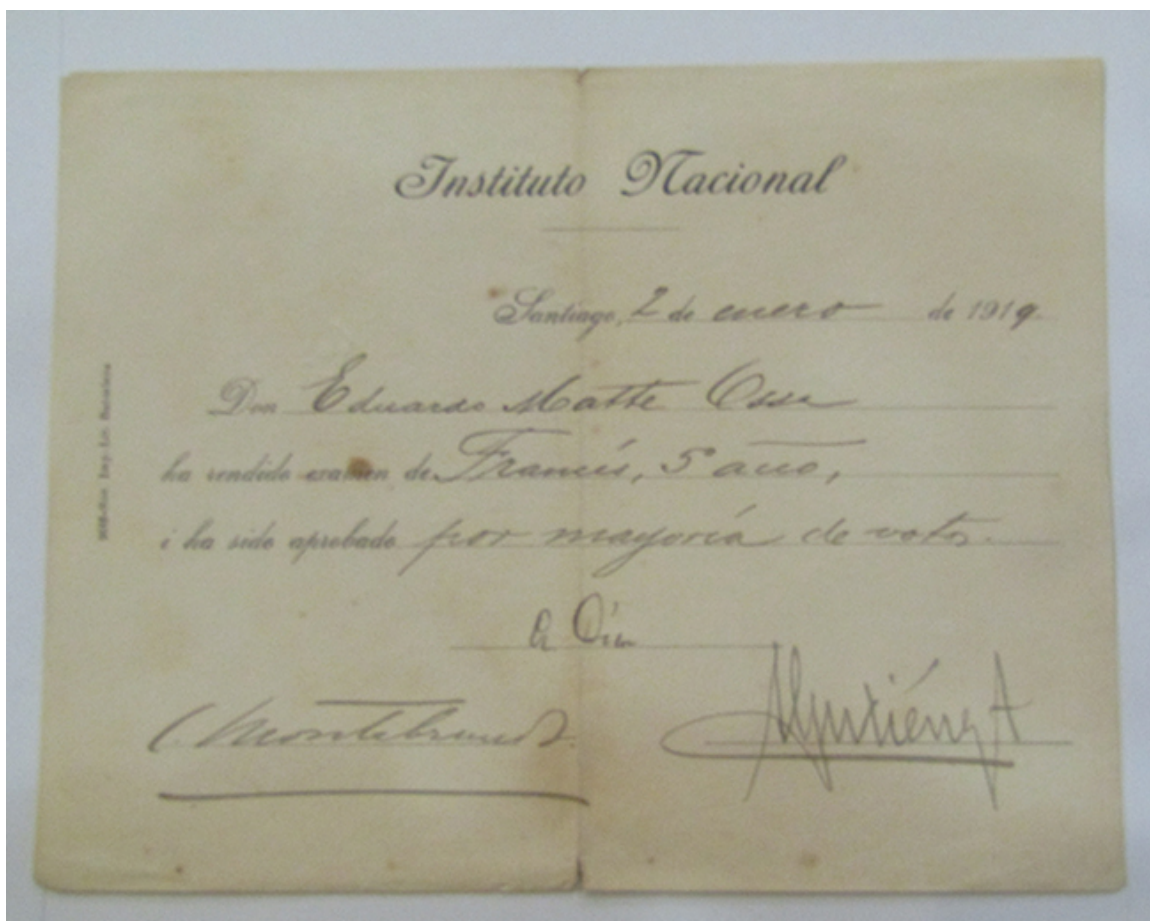 Instituto Nacional
Santiago, 2 de enero de 1919.
Don Eduardo Matte Ossa
ha rendido examen de Francés, 5º año,
i ha sido aprobado por mayoría de votos.
Imp. Lit.
C. Montebruno